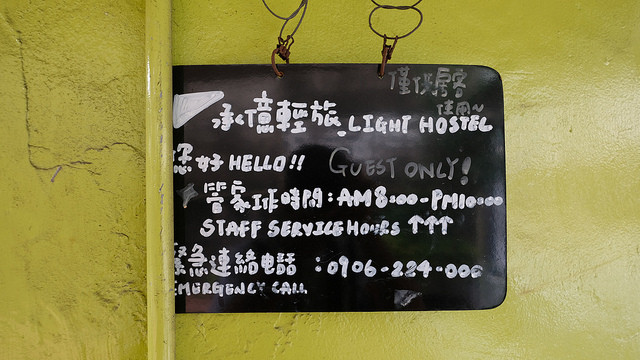 僅供房客
使用~
承億輕旅 LIGHT HOSTEL
您好 HELLO!! GUEST ONLY!
管家工作時間:AM8:00-PM10:00
STAFF SERVICE HOURS ↑↑↑
緊急連絡電話:0906-224-006
EMERGENCY CALL